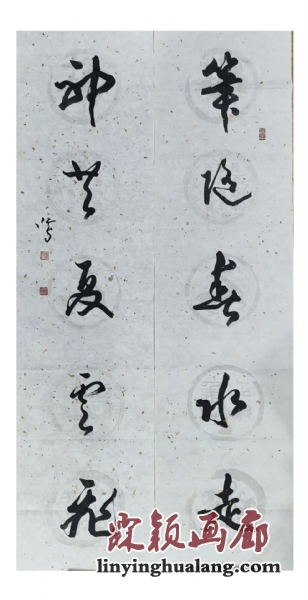 筆随春水走
神共夏雲飛
颖画廊
linyinghualang.com